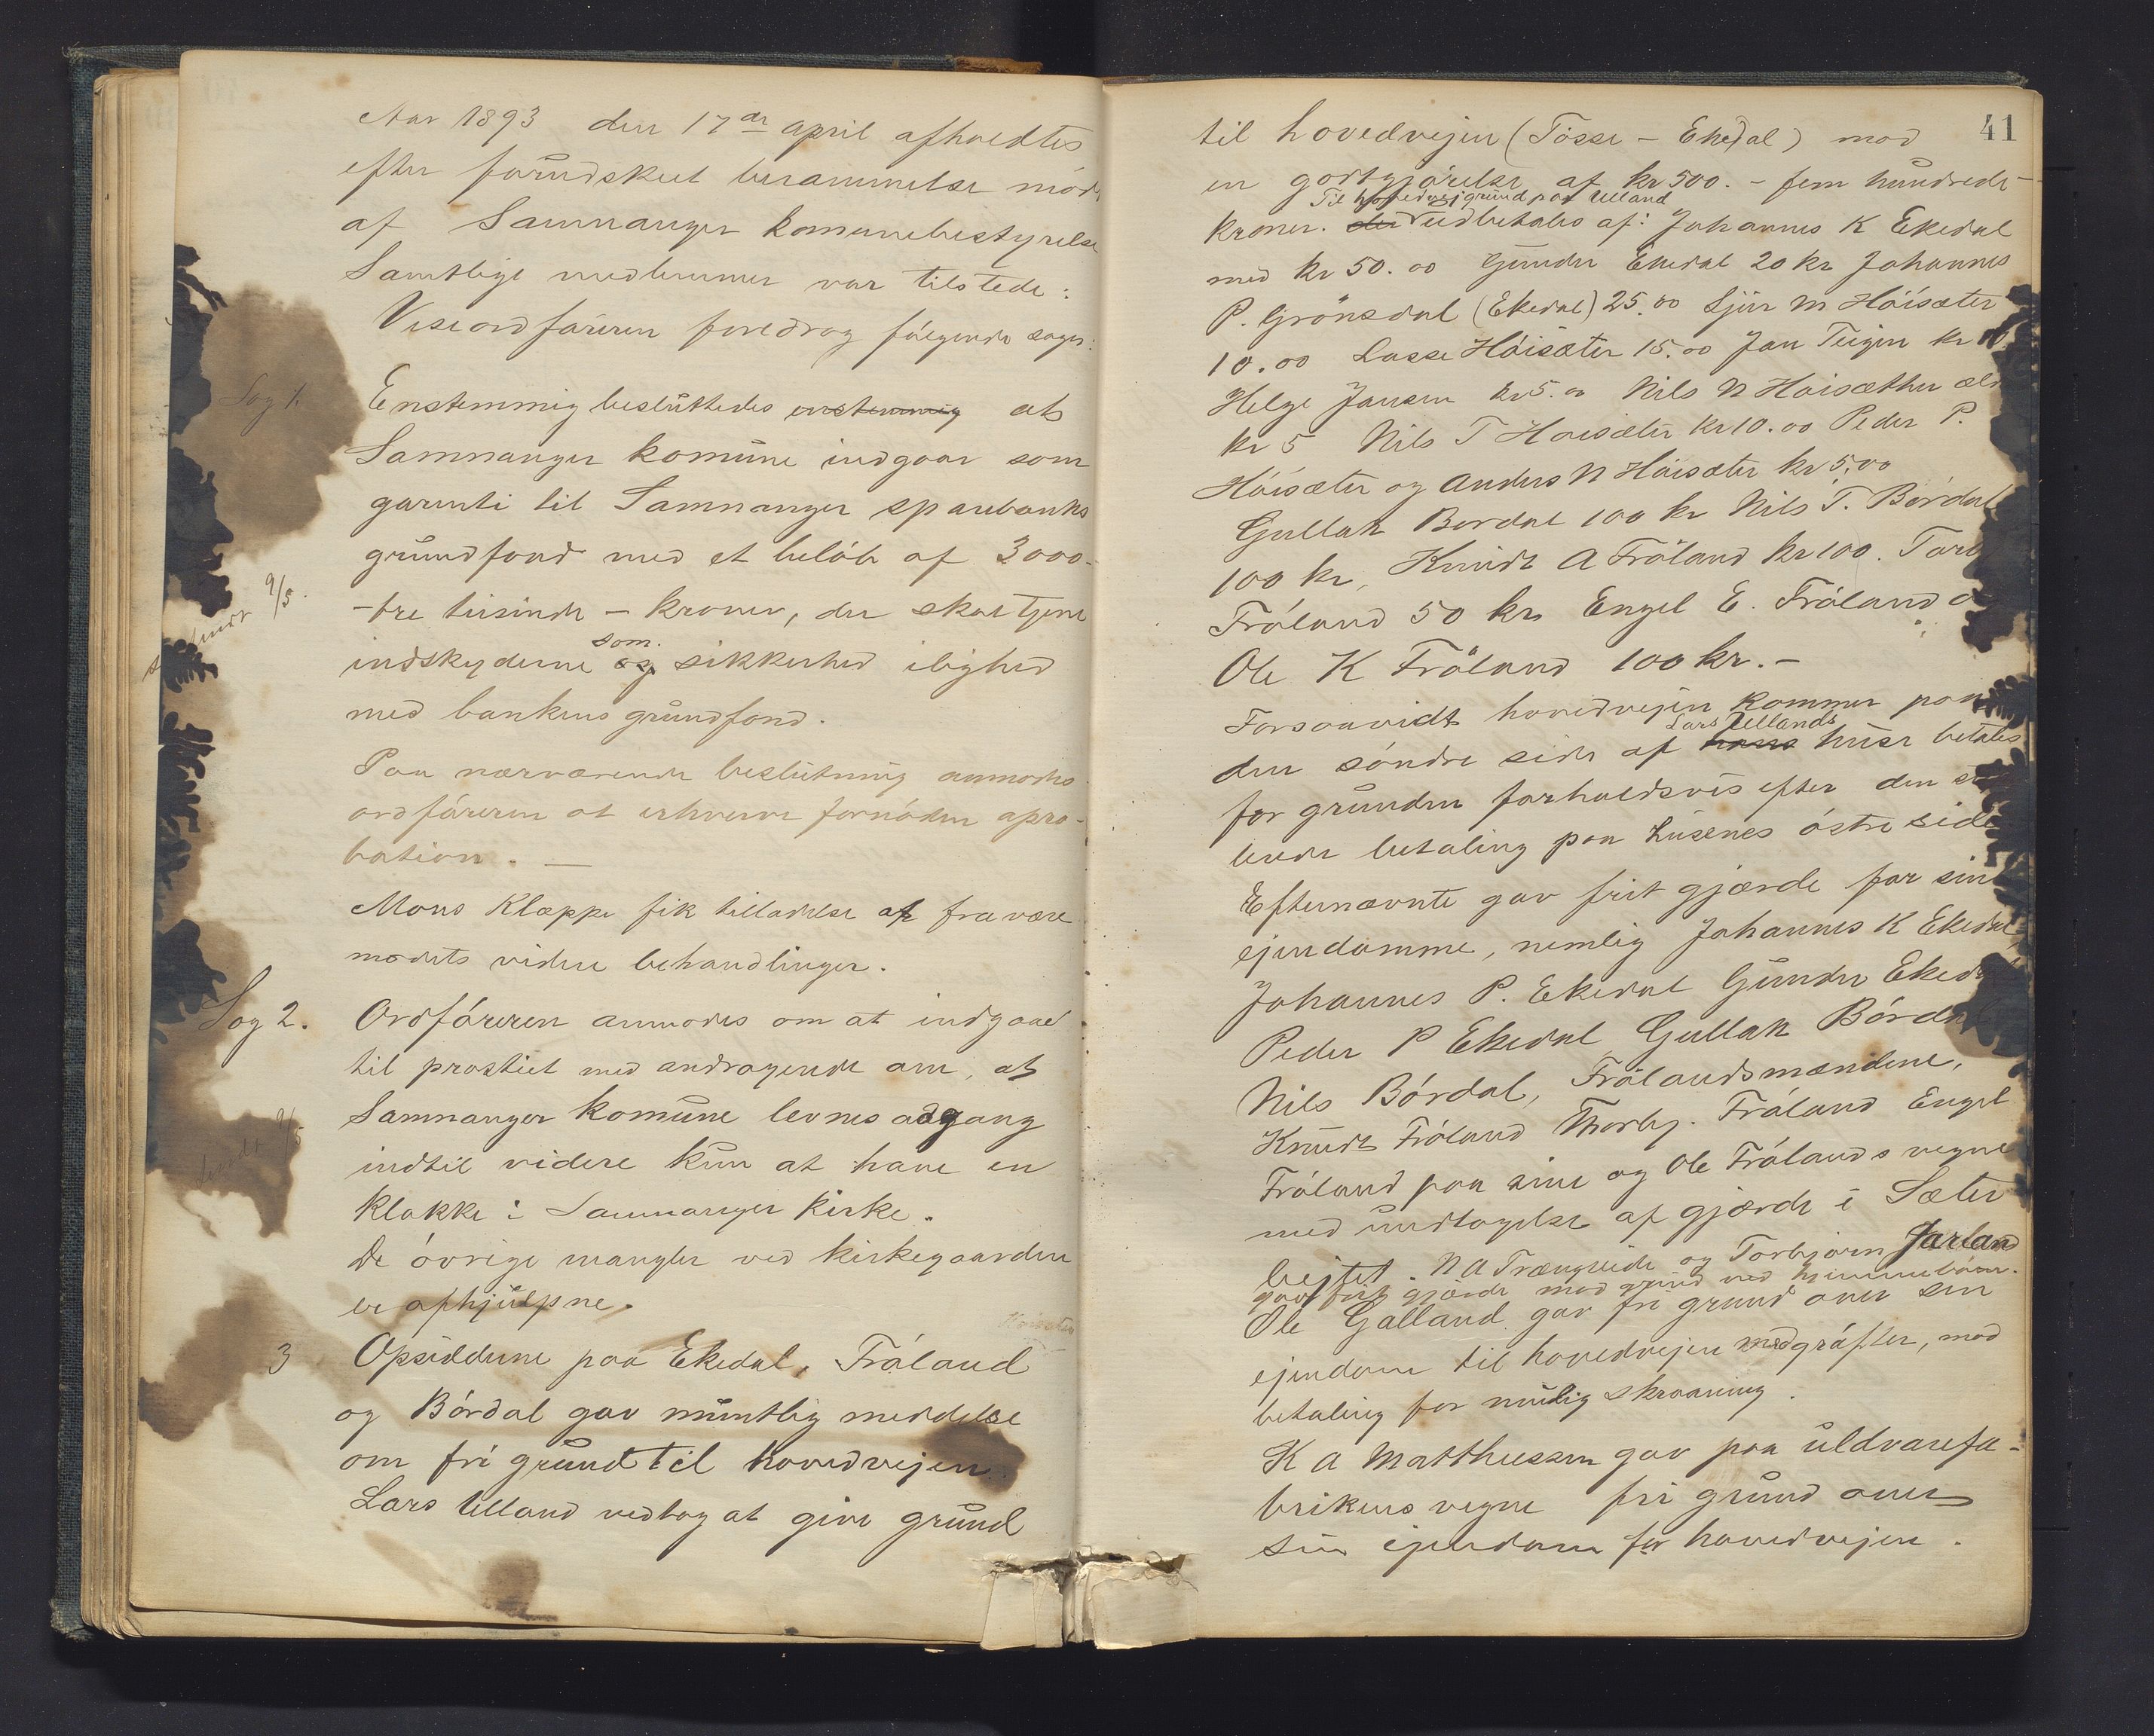 Aar 1893 den 17de april afholdtes
efter forudskeet berammelse möde
af Samnanger komunebestyrelse
Samtlige medlemmer var tilstede:
Viseordföreren foredrog fölgende sager:
Sag 1. Enstemmig besluttedes enstemmig at
Samnanger komune indgaar som
garenti til Samnanger sparebanks
grundfond med et belöb af 3000-
-tre tusinde - kroner, der skal tjene
sendt 9/5.
indskyderne og som. sikkerhed ilighed
med bankens grundfond.
Paa nærværende beslutning anmodes
ordföreren at erhverve fornöden apro-
bation. —
Mons Kleppe fik tilladelse at fravære
mödets videre behandlinger.
Sag 2. Ordföreren anmodes om at indgaae
til prostiet med andragende om, at
Samnanger komune levnes adgang
sendt 9/5
indtil videre kun at have en
klokke i Samnanger kirke.
De övrige mangler ved kirkegaarden
er afhjulpne.
3 Opsidderne paa Ekedal, Fröland
og Bördal gav muntlig meddelse
om fri grund til hovedvejen.
Lars Ulland vedtog at give grund
41
til hovedvejen (Tösse - Ekedal) mod
en godtgjörelse af kr 500. - fem hundrede-
Til hovedvejgrund paa Ulland
kroner. der udbetales af: Johannes K Ekedal
med kr 50.00 Gunder Ekedal 20 kr Johannes
P. Grönsdal (Ekedal) 25.00 Sjur M Höisæter
10.00 Lasse Höisæter 15.00 Jan Teigen kr 10.
Helge Jansen kr 5.00 Nils N Hoisæther æld
kr 5 Nils T Hoisæter kr 10.00 Peder P.
Höisæter og Anders N Höisæter kr 5.00
Gullak Bordal 100 kr Nils T. Bördal
100 kr, Knudt A Fröland kr 100. Torb
Fröland 50 kr Engel E. Fröland o
Ole K Fröland 100 kr. -
Forsaavidt hovedvejen kommer paa
Lars Ullands
den söndre side af hans huse betales
for grunden forholdsvis efter den
bende betaling paa husenes östre side
Efternævnte gav frit gjærde for sine
ejendomme, nemlig Johannes K Ekedal,
Johannes P. Ekedal Gunder Ekedal
Peder P Ekedal Gullak Bördal
Nils Bördal, Frölandsmændene,
Knudt Fröland Thorbj. Fröland Engel
Fröland paa sine og Ole Frölands vegne
med undtagelse af gjærde i Sæter
bejtet. N A Trængereide og Torbjörn Jarland
gav frit gjærde mod grund ved
Ole Galland gav fri grund over sin
ejendom til hovedvejen med gröfter, mod
betaling for mulig skraaning.
K A Matthiessen gav paa uldvarefa-
brikens vegne fri grund over
sin ejendom for hovedvejen.